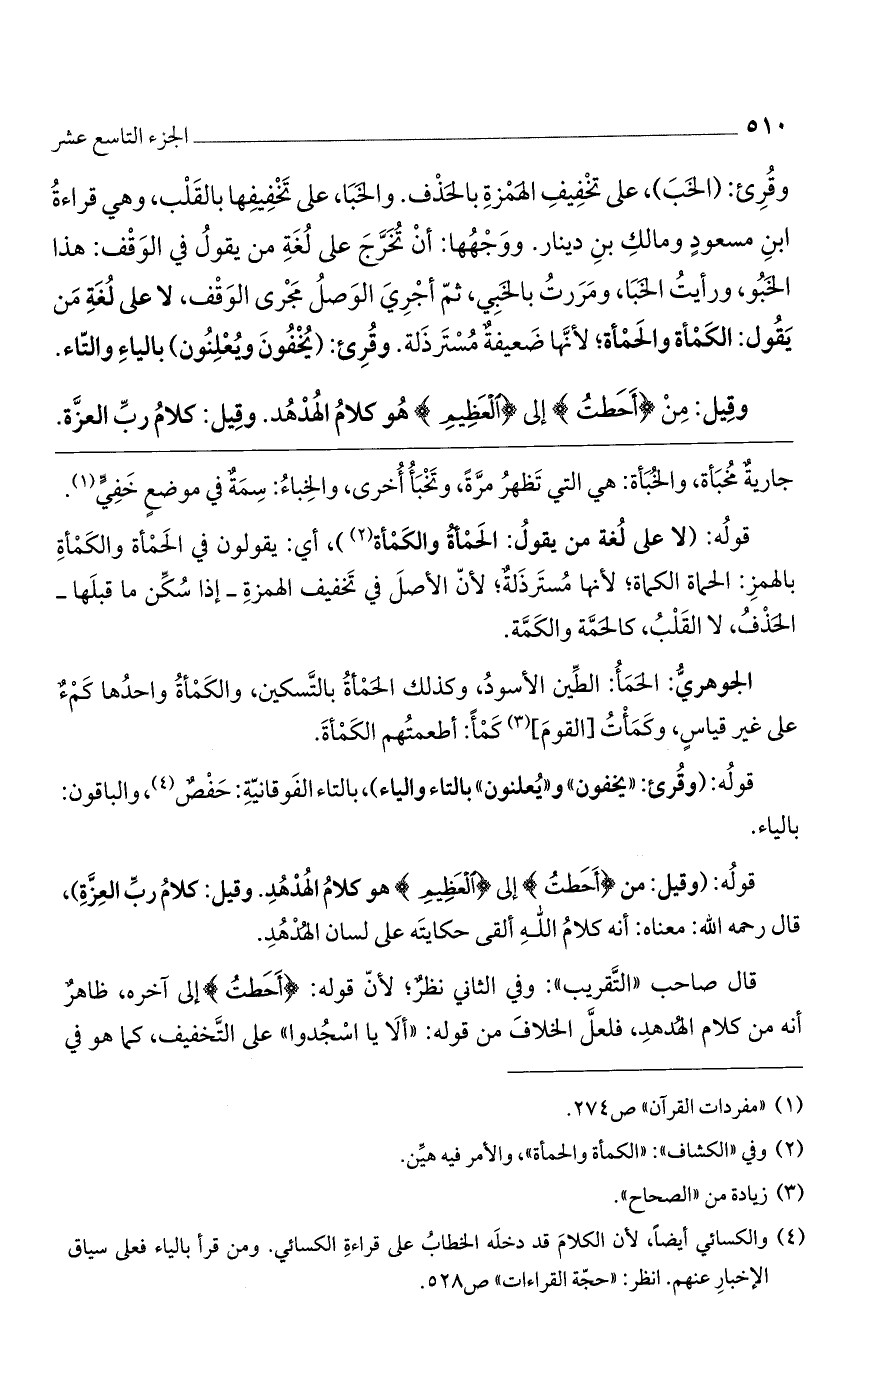 ٥١٠ الجزء التاسع عشر
وقُرِئ: (الخَبَ)، على تخْفِيفِ الهَمْزةِ بالحَذْف. والخَبَا، على تَخْفِيفِها بالقَلْب، وهي قراءةُ
ابنِ مسعودٍ ومالكِ بنِ دينار. ووَجْهُها: أنْ تُخَرَّجَ على لُغَةِ من يقولُ في الوَقْف: هذا
الخَبُو، ورأيتُ الخَبَا، ومَرَرتُ بالخَبِي، ثمّ أجْرِيَ الوَصلُ مَجْرى الوَقْف، لا على لُغَةِ مَن
يَقُول: الكَمْأة والحَمْأة؛ لأنَّها ضَعيفةٌ مُسْتَرذَلة. وقُرِئ: (يُخْفُونَ ويُعْلِنُون) بالياءِ والتّاء.
وقِيل: مِنْ ﴿أَحَطتُ﴾ إلى ﴿ٱلْعَظِيمِ﴾ هُو كلامُ الهُدْهُد. وقِيل: كلامُ ربِّ العزَّة.
جاريةٌ مُخبَأة، والخُبَأة: هي التي تَظهرُ مرَّةً، وتَخْبَأُ أُخرى، والخِباءُ: سِمَةٌ في موضعٍ خَفِيٍّ(١).
قولُه: (لا على لُغة من يقولُ: الحَمْأةُ والكَمْأة(٢))، أي: يقولون في الحَمْأة والكَمْأةِ
بالهمزِ: الحماة الكماة؛ لأنها مُستَرذَلةٌ؛ لأنّ الأصلَ في تَخفيف الهمزةِ ـ إذا سُكِّن ما قبلَها ـ
الحَذْفُ، لا القَلْبُ، كالحَمَّة والكَمَّة.
الجوهريُّ: الحَمَأُ: الطِّين الأسودُ، وكذلك الحَمْأةُ بالتَّسكين، والكَمْأةُ واحدُها كَمْءٌ
على غير قياسٍ، وكَمَأْتُ [القومَ](٣) كَمْأً: أطعمتُهم الكَمْأةَ.
قولُه: (وقُرئ: «يخفون» و«يُعلنون» بالتاء والياء)، بالتاء الفَوقانيّةِ: حَفْصٌ(٤)، والباقون:
بالياء.
قولُه: (وقيل: من ﴿أَحَطتُ﴾ إلى ﴿ٱلْعَظِيمِ﴾ هو كلامُ الهُدْهُدِ. وقيل: كلامُ ربِّ العِزَّةِ)،
قال رحمه الله: معناه: أنه كلامُ اللهِ ألقى حكايتَه على لسان الهُدْهُدِ.
قال صاحب «التَّقريب»: وفي الثاني نظرٌ؛ لأنّ قوله: ﴿أَحَطتُ﴾ إلى آخره، ظاهرٌ
أنه من كلام الهُدهدِ، فلعلَّ الخلافَ من قوله: «ألَا يا اسْجُدوا» على التَّخفيف، كما هو في
(١) «مفردات القرآن» ص٢٧٤.
(٢) وفي «الكشاف»: «الكمأة والحمأة»، والأمر فيه هيِّن.
(٣) زيادة من «الصحاح».
(٤) والكسائي أيضاً، لأن الكلامَ قد دخلَه الخطابُ على قراءةِ الكسائي. ومن قرأ بالياء فعلى سياق
الإخبارِ عنهم. انظر: «حجّة القراءات» ص٥٢٨.